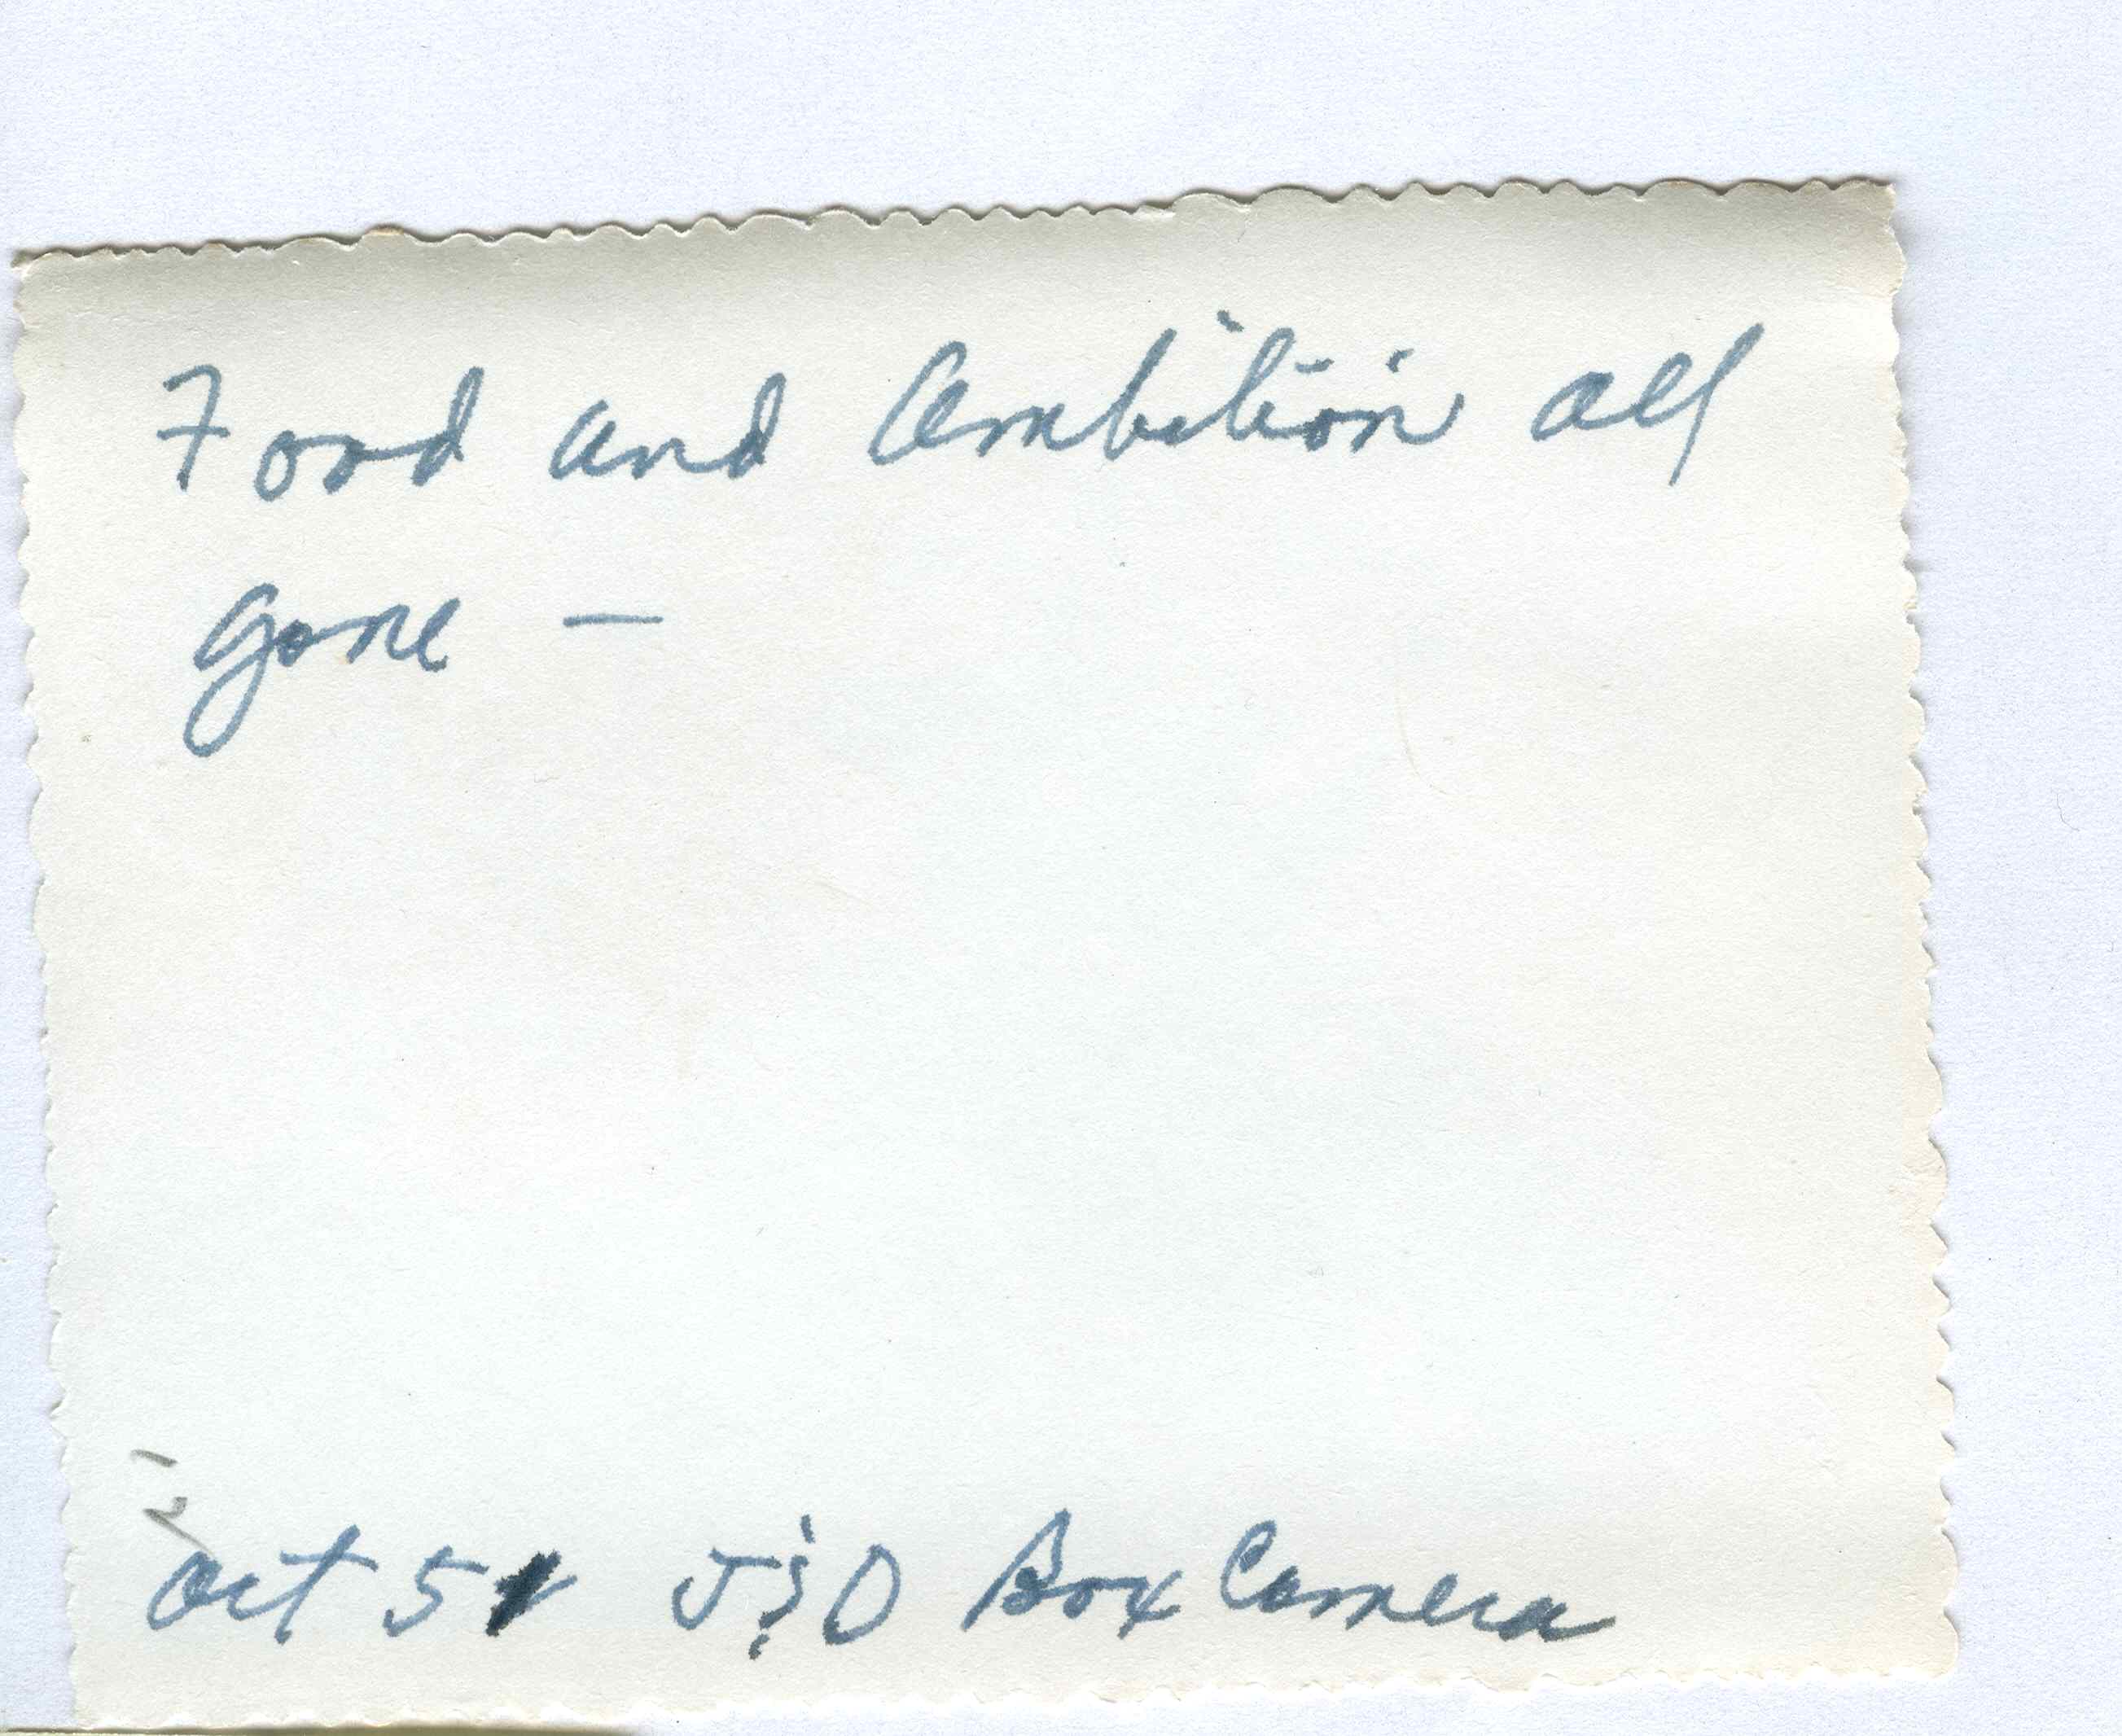 Food and Ambition all
gone —
Oct 51 J & D Box Camera